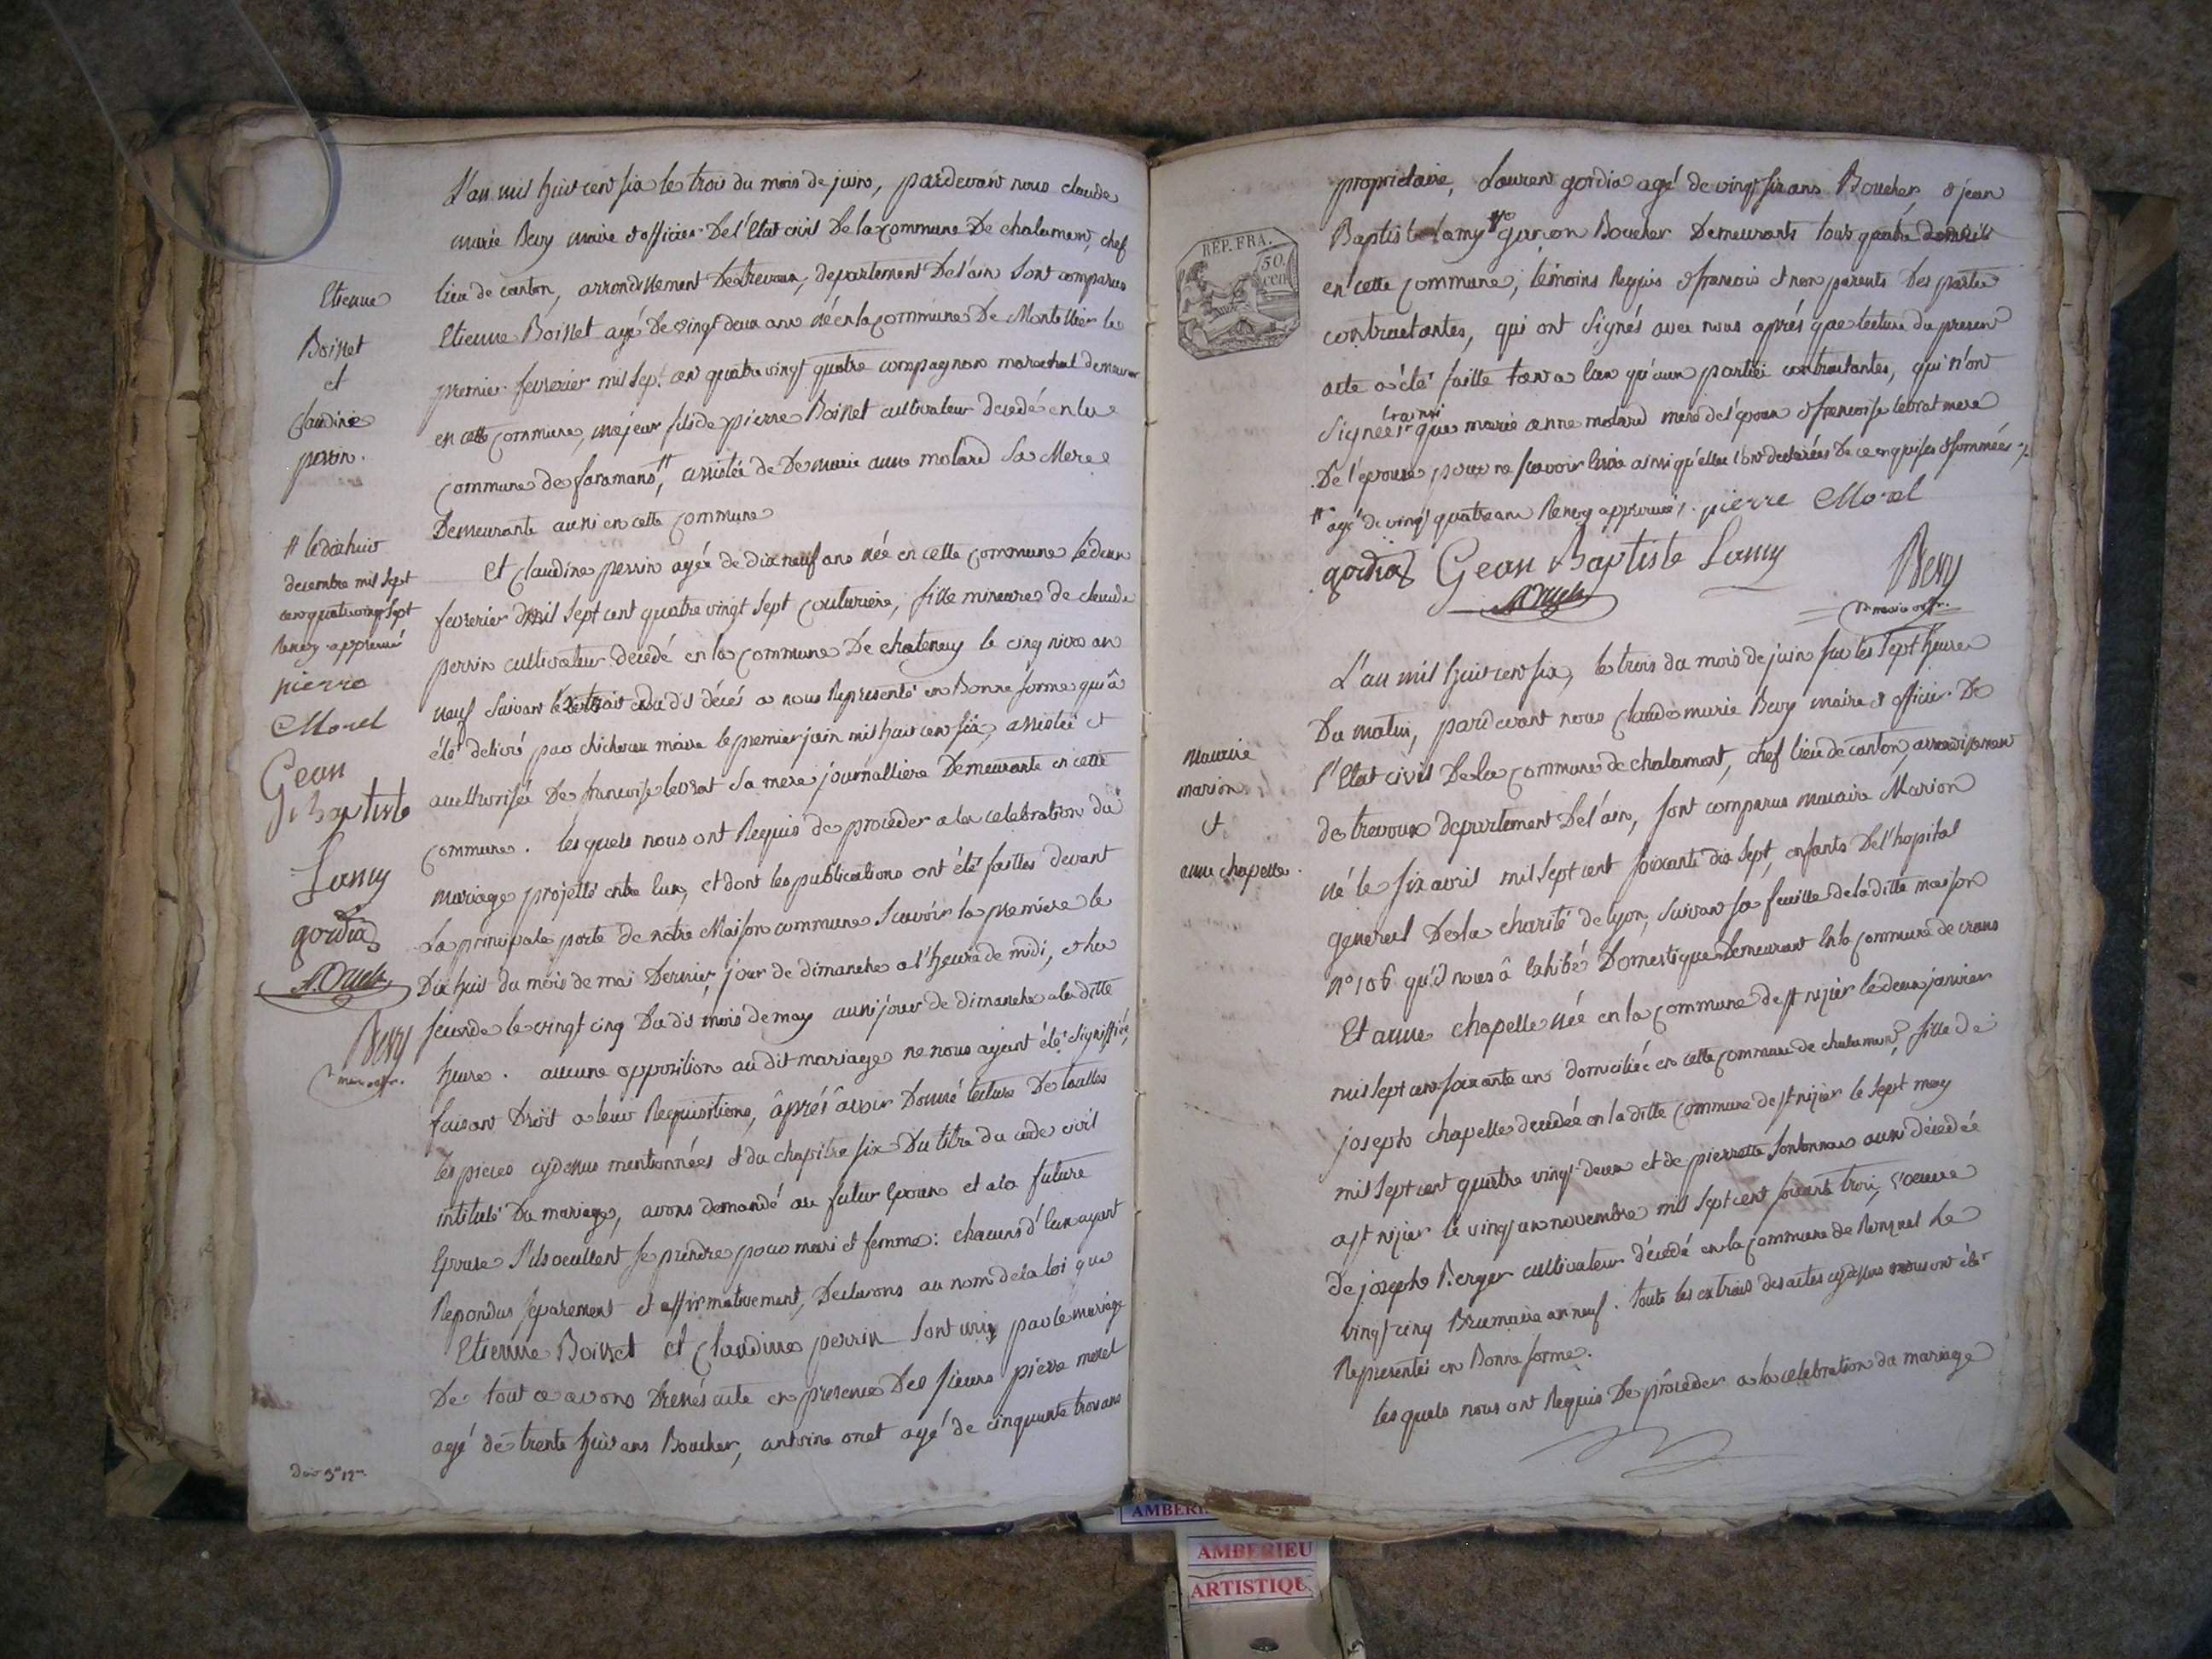 L'an mil huit cent six le trois du mois de juin, pardevant nous claude
marie Bevy maire & officier De l'Etat civil De la commune De chalamont, chef
lieu de canton, arrondissement De trevoux, departement De l'ain sont comparus
Etienne Boisset agé De vingt deux ans né en la commune De Montellier le
premier fevrerier mil sept cent quatre vingt quatre compagnon marechal demeurant
en cette commune, majeur fils de pierre Boisset cultivateur decedé en la
commune de faramans #, assistée de De marie anne molard sa Mere
Demeurante aussi en cette commune
et claudine perrin agée de dix neuf ans née en cette commune le deux
fevrerier mil sept cent quatre vingt sept couturiere, fille mineure de claude
perrin cultivateur decedé en la commune De chatenay le cinq nivos an
neuf suivant l'extrait du dit décés a nous Representé en Bonne forme qui â
été delivré par maire le premier juin mil huit cent six, assistée et
authorisée De francoise levrat sa mere journalliere Demeurante en cette
commune. les quels nous ont Requis de proceder a la celebration du
mariage projetté entre eux, et dont les publications ont été faittes devant
La principale porte de notre Maison commune scavoir la premiere le
Dix huit du mois de mai Dernier, jour de dimanche a l'heure de midi, & la
seconde le vingt cinq Du dit mois de may aussi jour de dimanche a la ditte
heure. aucune opposition au dit mariage ne nous ayant été signiffiée,
faisant Droit a leur Requisitions, âprés avoir Donné lecture De touttes
les pieces cydessus mentionnées et du chapitre six Du titre du code civil
intitulé Du mariage, avons demandé au futur Epoux et a la future
Epouse s'ils veullent se prendre pour mari et femme: chacuns d'eux ayant
Repondus separement et affirmativement, Declarons au nom de la loi que
Etienne Boisset et Claudine perrin sont unis par le mariage
De tout ce avons Dressés acte en presence Des sieurs pierre morel
agé de trente huit ans Boucher, antoine oriet agé de cinquante trois ans
Etienne
Boisset
et
claudine
perrin.
# le dix huit
decembre mil sept
cent quatre vingt sept
Renvoy approuvé
pierre
Morel
Gean
Baptiste
Lamy
gordia
Bevy
maire offr.
proprietaire, Laurent gordia agé de vingt six ans Boucher, & jean
Baptiste lamy # garcon Boucher Demeurants tous quatre
en cette commune, témoins Requis & francois et non parents Des parties
contractantes, qui ont signés avec nous aprés que lecture du present
acte a été faitte tant a eux qu'aux parties contractantes, qui n'ont
signées que marie anne molard mere de l'epoux & francoise levrat mere
De l'epouse pour ne scavoir ecrire ainsi qu'elles l'ont declarées De ce enquises & sommées
# agé de vingt quatre ans Renvoy approuvé. pierre Morel
gordia Gean Baptiste Lamy
Bevy
maire offr.
L'an mil huit cent six, le trois du mois de juin sur les sept heures
Du matin, pardevant nous claude marie Bevy maire & officier De
l'Etat civil De la commune de chalamont, chef lieu de canton, arrondissement
de trevoux departement De l'ain, sont comparus macaire Marion
né le six avril mil sept cent soixante dix sept, enfants De l'hopital
general De la charité de lyon, suivant sa feuille de la ditte maison
n° 106 qu'il nous â Exhibé Domestique Demeurant En la commune de crans
Et anne chapelle née en la commune de st nizier le deux janvier
mil sept cent soixante un domiciliée en cette commune de chalamont, fille de
joseph chapelle decedée en la ditte commune de st nizier le sept may
mil sept cent quatre vingt deux et de pierrette aussi decedée
a st nizier le vingt un novembre mil sept cent soixante trois, veuve
De joseph Berger cultivateur décedé en la commune de le
vingt cinq Brumaire an neuf. toute les extraits des actes cydessus nous ont été
Representés en Bonne forme.
les quels nous ont Requis De proceder a la celebration du mariage
macaire
marion
et
anne chapelle.
REP. FRA.
50
CEN
AMBERIEU
ARTISTIQU